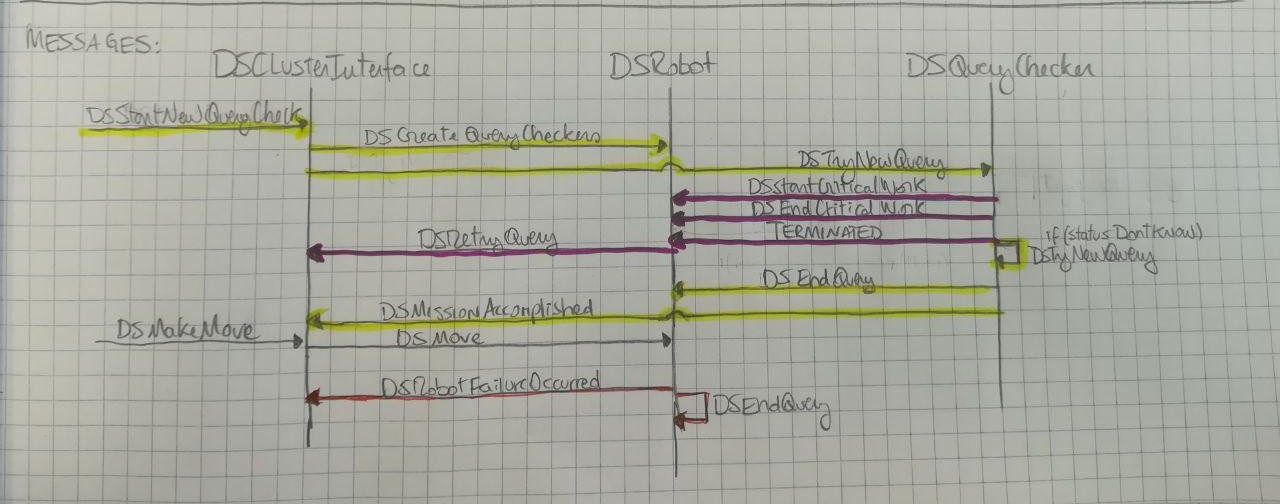 MESSAGES:
DSClusterInterface
DSRobot
DSQueryChecker
DSStartNewQueryCheck
DSCreateQueryCheckers
DSTryNewQuery
DSStartCriticalWork
DSEndCriticalWork
DSRetryQuery
TERMINATED
if(statusDontKnow)
DSTryNewQuery
DSEndQuery
DSMissionAccomplished
DSMakeMove
DSMove
DSRobotFailureOccurred
DSEndQuery